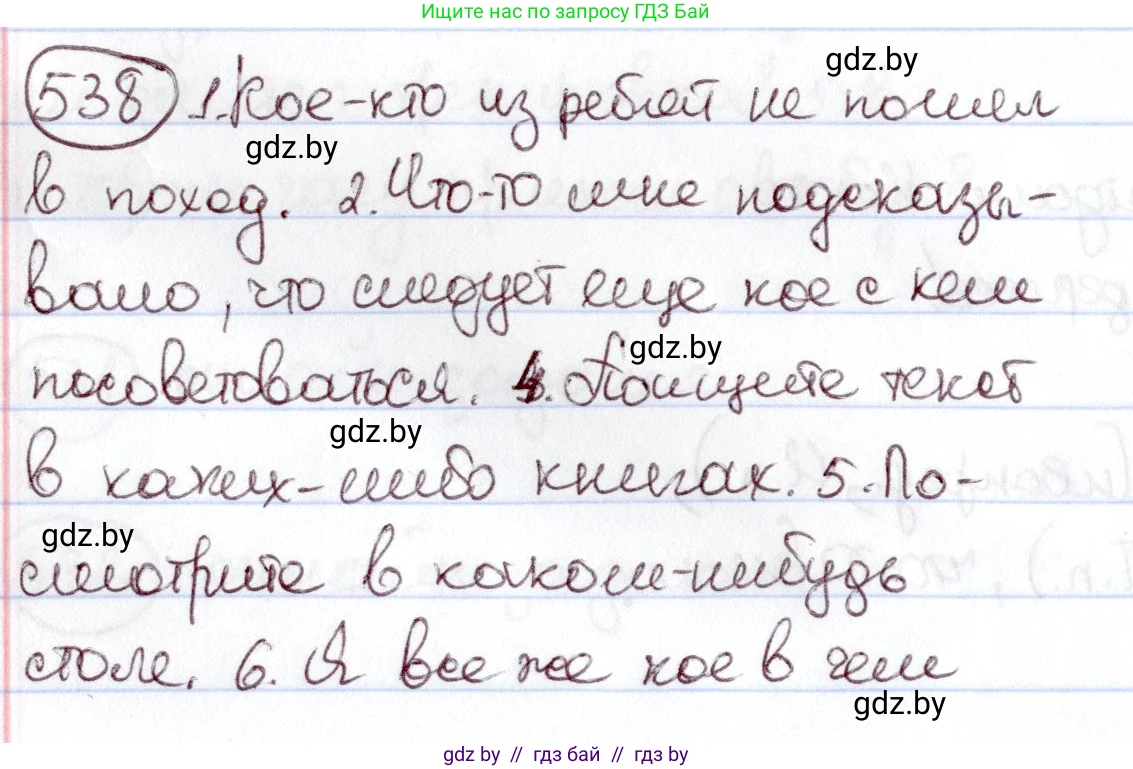 Ищите нас по запросу ГДЗ Бай
gdz.by
538 1. Кое-кто из ребят не пошел
gdz.by
в поход. 2. Что-то мне подсказы-
вало, что следует еще кое с кем
gdz.by
посоветоваться. 4. Поищите текст
gdz.by
в каких-либо книгах. 5. По-
gdz.by
смотрите в каком-нибудь
столе. 6. Я все же кое в чем
gdz.by
gdz.by // гдз бай // гдз by